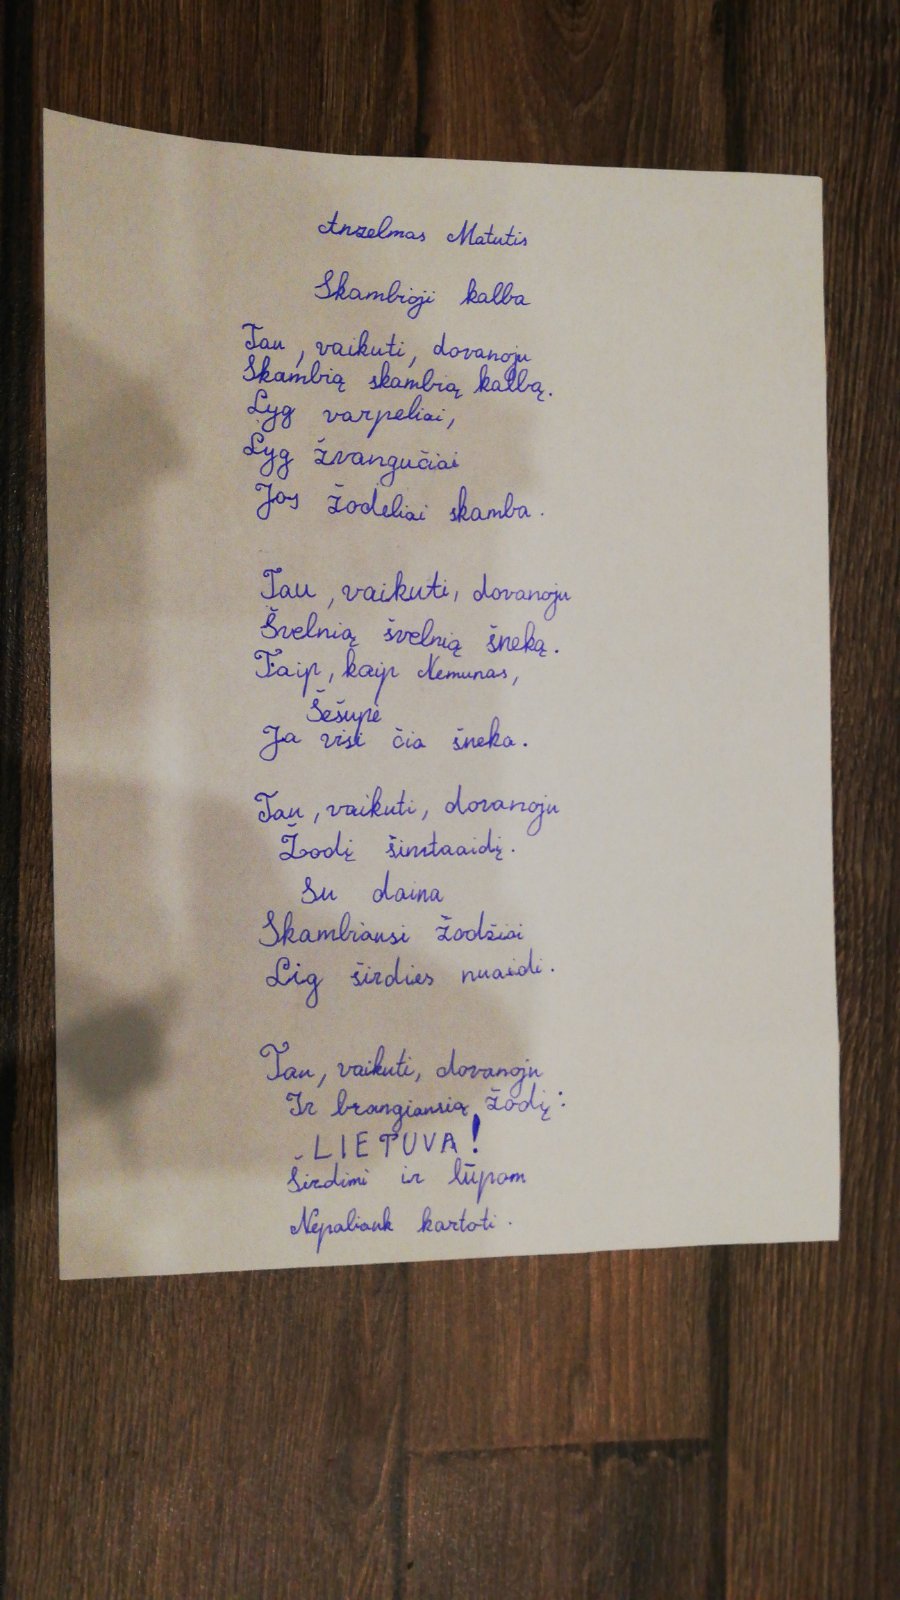 Anzelmas Matutis
Skambioji kalba
Tau, vaikuti, dovanoju
Skambią skambią kalbą.
Lyg varpeliai,
Lyg žvangučiai
Jos žodeliai skamba.
Tau, vaikuti, dovanoju
Švelnią švelnią šneką.
Taip, kaip Nemunas,
Šešupė
Ja visi čia šneka.
Tau, vaikuti, dovanoju
Žodį šimtaaidį.
Su daina
Skambiausi žodžiai
Lig širdies nuaidi.
Tau, vaikuti, dovanoju
Ir brangiausią žodį:
LIETUVA!
Širdimi ir lūpom
Nepaliauk kartoti.